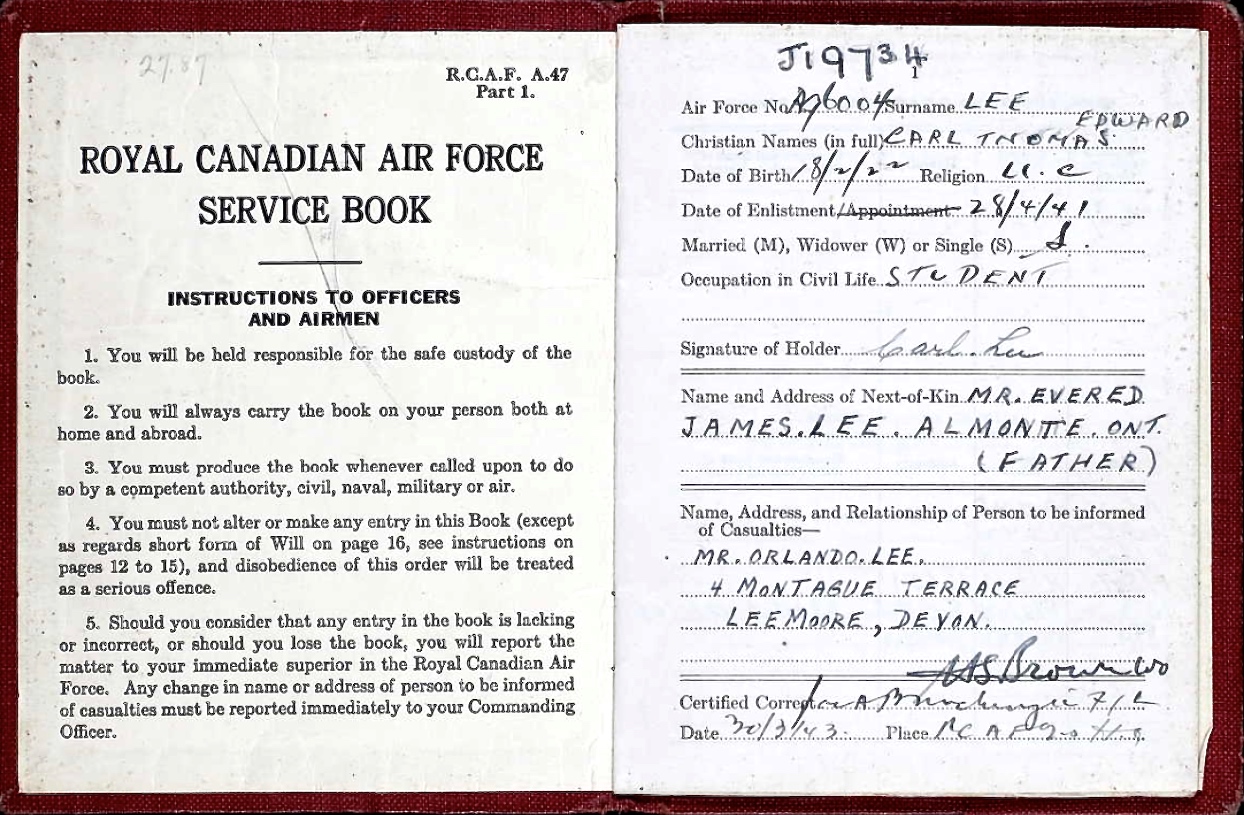 27.87
R.C.A.F. A.47
Part 1.
ROYAL CANADIAN AIR FORCE
SERVICE BOOK
INSTRUCTIONS TO OFFICERS
AND AIRMEN
1. You will be held responsible for the safe custody of the
book.
2. You will always carry the book on your person both at
home and abroad.
3. You must produce the book whenever called upon to do
so by a competent authority, civil, naval, military or air.
4. You must not alter or make any entry in this Book (except
as regards short form of Will on page 16, see instructions on
pages 12 to 15), and disobedience of this order will be treated
as a serious offence.
5. Should you consider that any entry in the book is lacking
or incorrect, or should you lose the book, you will report the
matter to your immediate superior in the Royal Canadian Air
Force. Any change in name or address of person to be informed
of casualties must be reported immediately to your Commanding
Officer.
J19734
1
Air Force No. Surname LEE
EDWARD
Christian Names (in full) CARL THOMAS
Date of Birth 18/2/22 Religion U.C
Date of Enlistment/Appointment 28/4/41
Married (M), Widower (W) or Single (S) S.
Occupation in Civil Life STUDENT
Signature of Holder Carl Lee
Name and Address of Next-of-Kin MR. EVERED
JAMES. LEE. ALMONTE. ONT.
(FATHER)
Name, Address, and Relationship of Person to be informed
of Casualties—
MR. ORLANDO. LEE.
4 MONTAGUE TERRACE
LEEMOORE, DEVON.
Brown WO
Certified Correct F/L
Date 30/3/43. Place RCAF